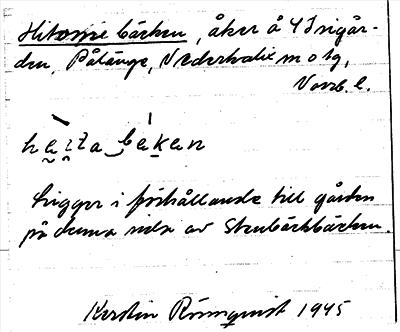 Hitomsebäcken, åker å Ydrigår-
den, Pålänge, Nederkalix m o tg,
Norrb. l.
haitabakan
Ligger i förhållande till gården
på denna sida av Stenbäckbäcken.
Kerstin Rönnquist 1945